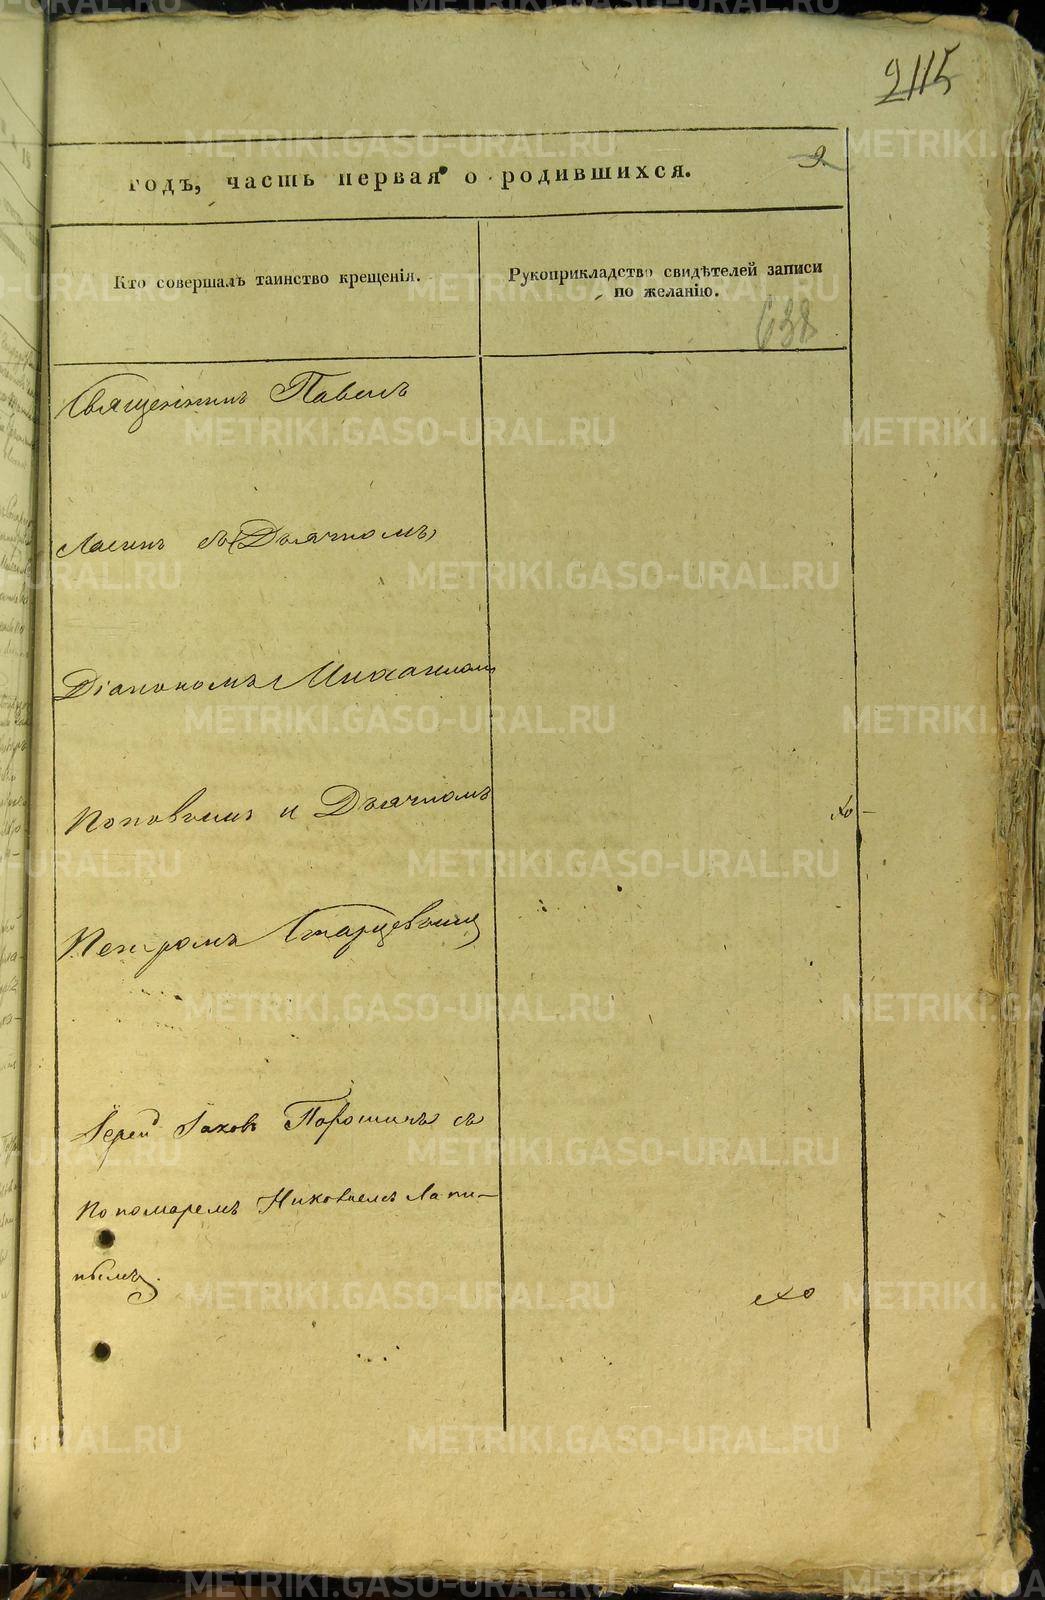 2115
годъ, часть первая о родившихся.
2
Кто совершалъ таинство крещенія.
Рукоприкладство свидѣтелей записи
по желанію.
638
Священникъ Павелъ
съ Дьячкомъ
Діакономъ Михаиломъ
Поповымъ и Дьячкомъ
Петромъ Старцевымъ
Іерей Іаковъ Порошинъ съ
Пономаремъ Лапи-
нымъ.
METRIKI.GASO-URAL.RU